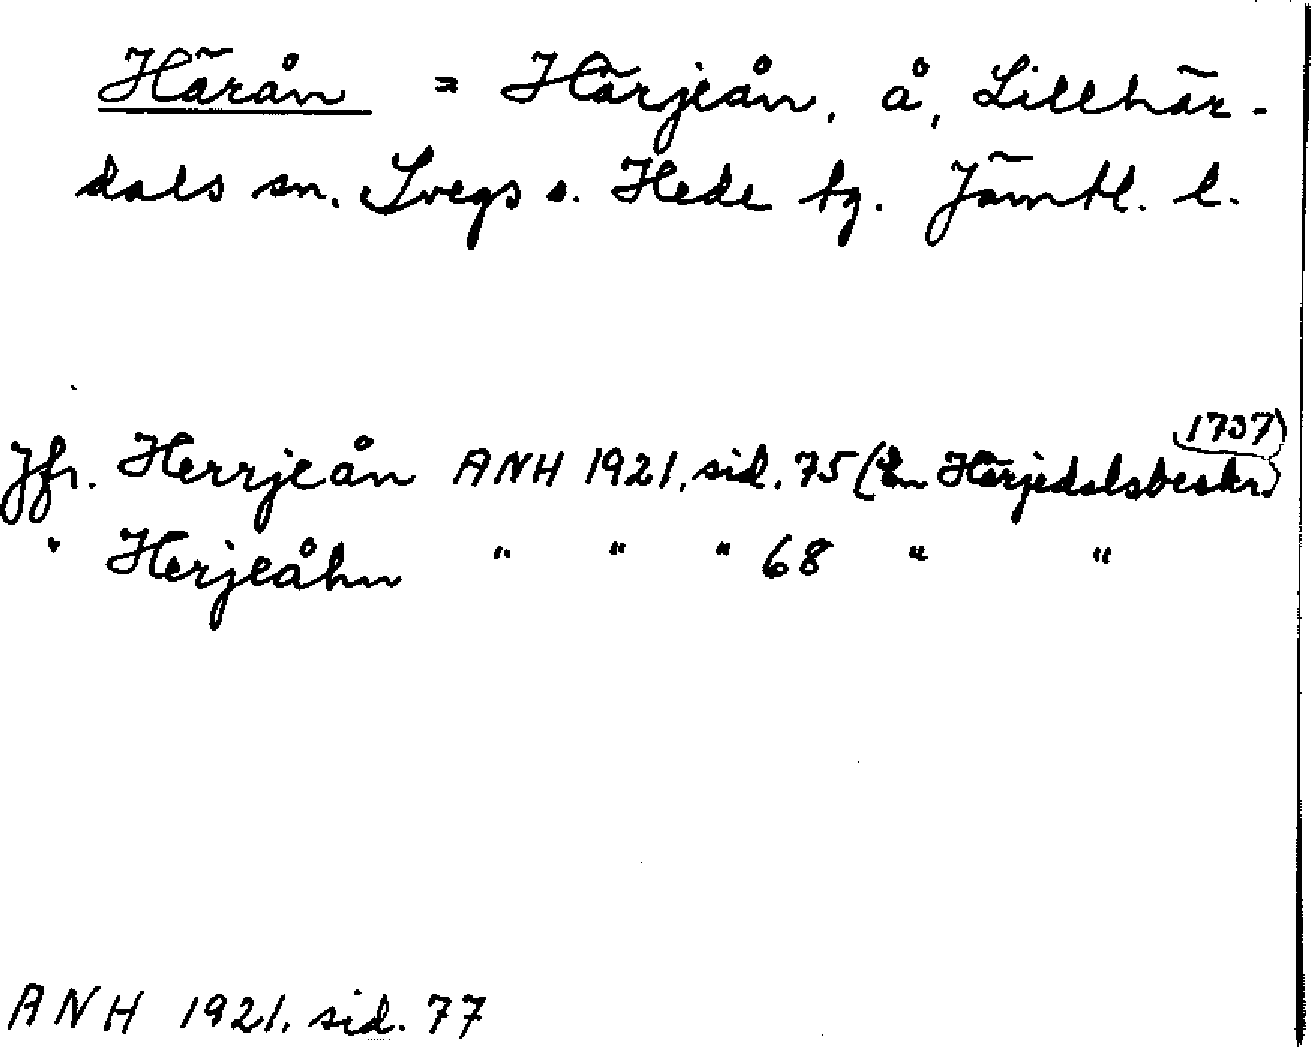 Härån = Härjeån, å, Lillhär-
dals sn. Svegs o. Hede tg. Jämtl. l.
1737)
Jfr. Herrjeån ANH 1921, sid. 75 (En Härjedalsbeskr.)
" Herjeåhn " " " 68 " "
ANH 1921. sid. 77